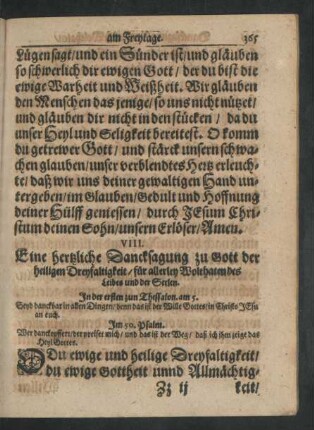 am Freytage. 365
Lügen sagt/und ein Sünder ist/und gläuben
so schwerlich dir ewigen Gott / der du bist die
ewige Warheit und Weißheit. Wir gläuben
den Menschen das jenige/ so uns nicht nützet/
und gläuben dir nicht in den stücken / da du
unser Heyl und Seligkeit bereitest. O komm
du getrewer Gott/ und stärck unsern schwa-
chen glauben/unser verblendtes Hertz erleuch-
te/ daß wir uns deiner gewaltigen Hand un-
tergeben/im Glauben/Gedult und Hoffnung
deiner Hülff geniessen / durch JEsum Chri-
stum deinen Sohn/unsern Erlöser/Amen.
VIII.
Eine hertzliche Dancksagung zu Gott der
heiligen Dreyfaltigkeit/ für allerley Wolthaten des
Leibes und der Seelen.
In der ersten zun Thessalon. am 5.
Seyd danckbar in allen Dingen/ denn das ist der Wille Gottes/in Christo JEsu
an euch.
Im 50. Psalm.
Wer danckopffert/der preiset mich/ und das ist der Weg/ daß ich ihm zeige das
Heyl Gottes.
O Du ewige und heilige Dreyfaltigkeit/
du ewige Gottheit unnd Allmächtig-
Zz ij keit/